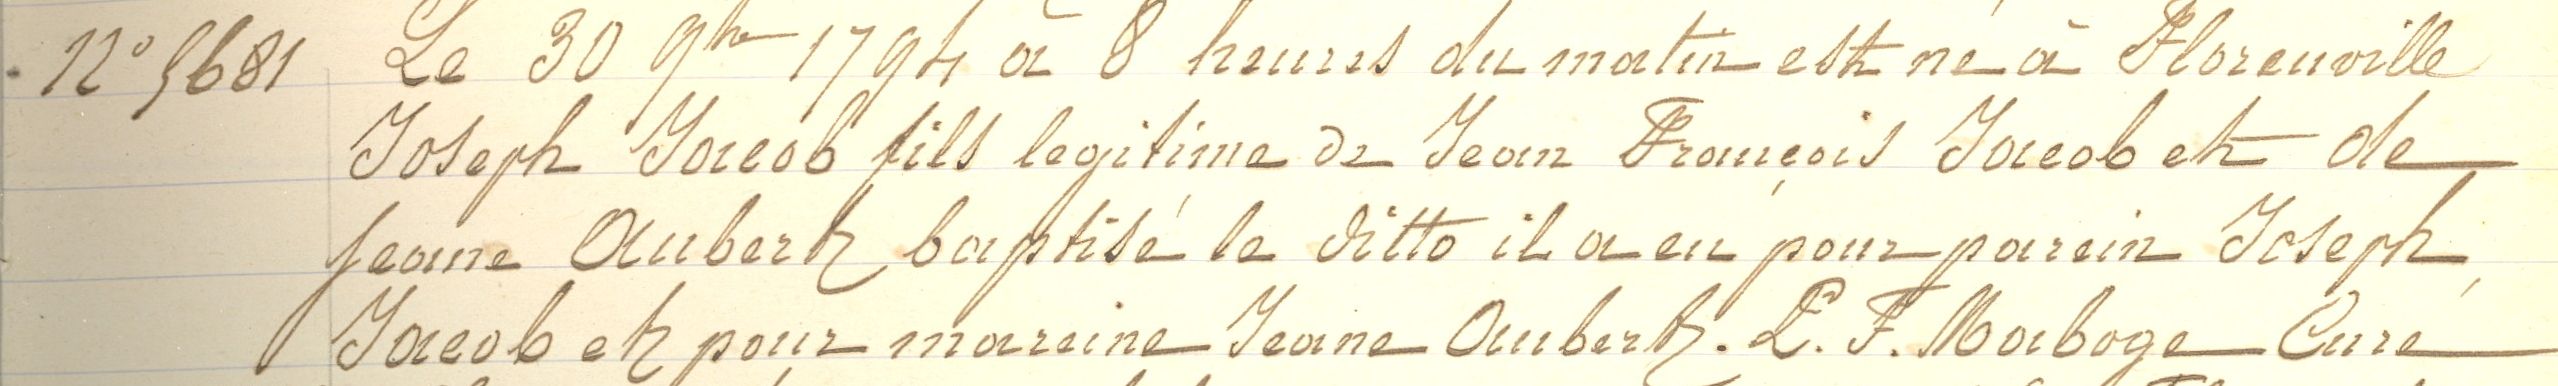 N° 5681 Le 30 9bre 1794 à 8 heures du matin est né à Florenville
Joseph Jacob fils legitime de Jean François Jacob et de
Jeane Aubert baptisé le ditto il a eu pour parein Joseph
Jacob et pour mareine Jeane Aubert. L. F. Maboge Curé